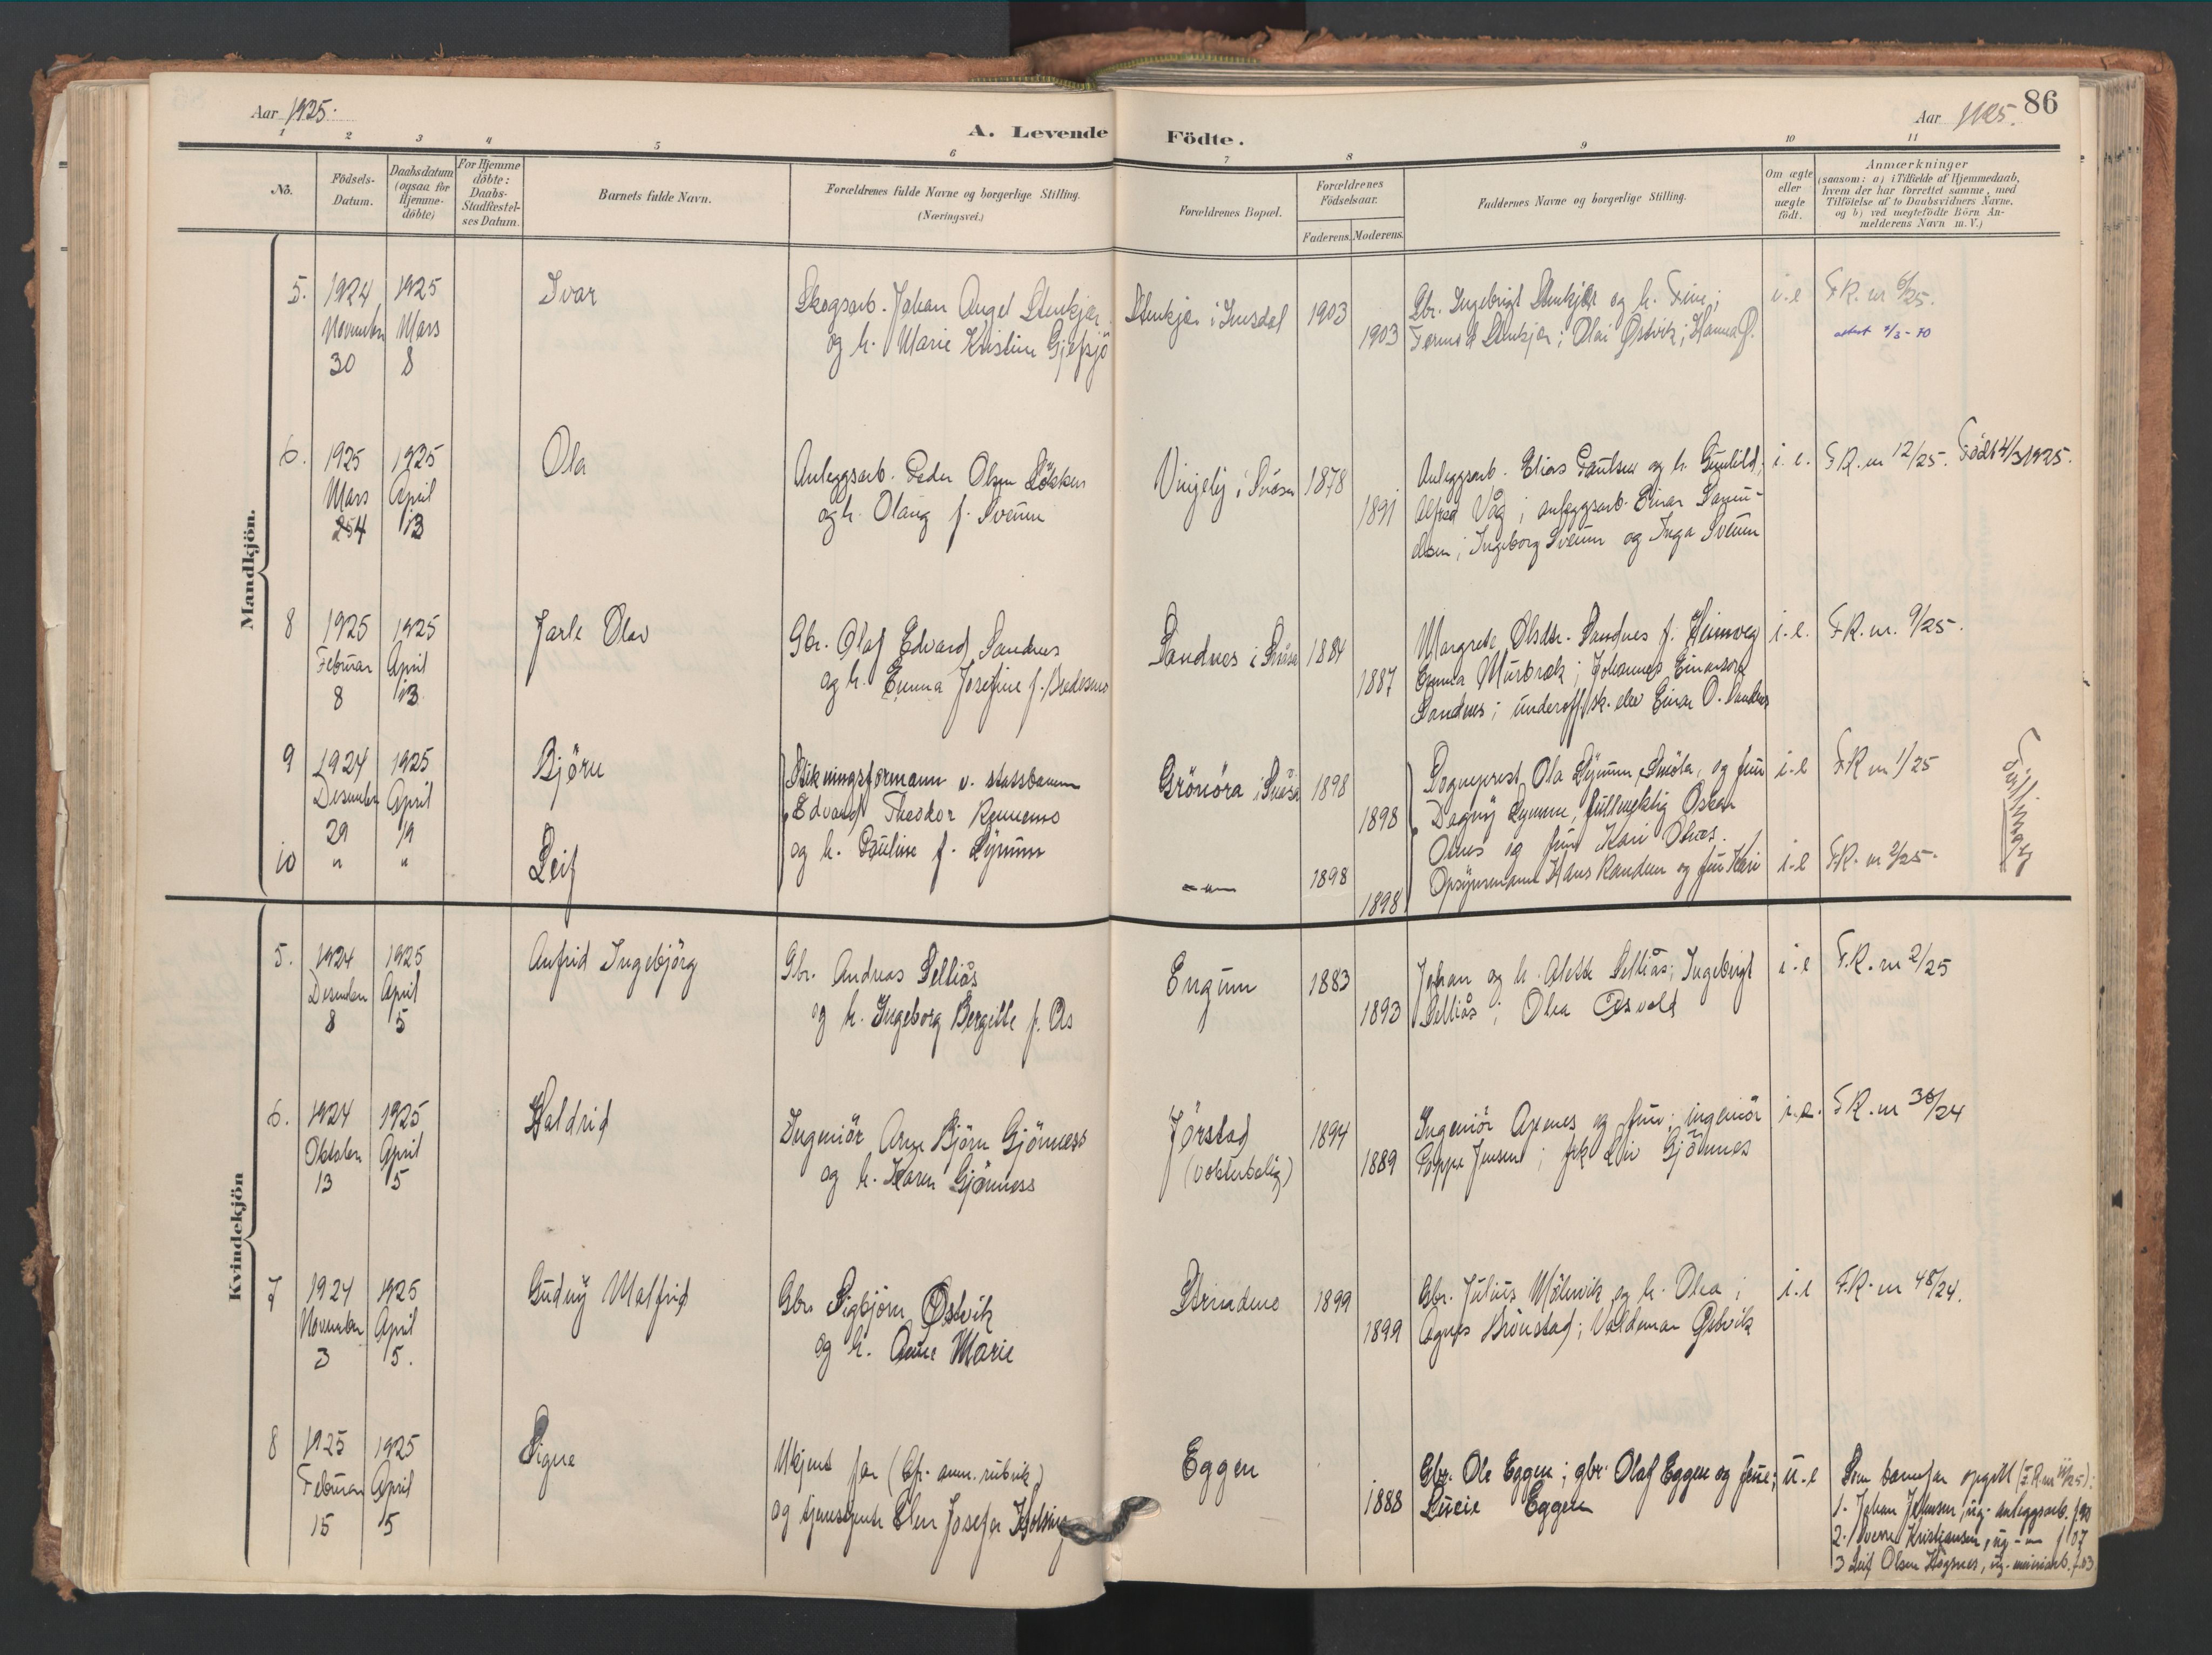 Aar 1925.
A. Levende Födte.
Aar 1925.
86
1 2 3 4 5 6 7 8 9 10 11
No.
Födsels-Datum.
Daabsdatum (ogsaa for Hjemme-döbte)
For Hjemme döbte: Daabs-Stadfæstel-ses Datum.
Barnets fulde Navn.
Forældrenes fulde Navne og borgerlige Stilling.
(Næringsvei.)
Forældrenes Bopæl.
Forældrenes Födselsaar.
Faderens. Moderens.
Faddernes Navne og borgerlige Stilling.
Om ægte eller uægte födt.
Anmærkninger
(saasom: a) i Tilfælde af Hjemmedaab,
hvem der har forrettet samme, med
Tilföielse af to Daabsvidners Navne,
og b) ved uægtefödte Börn An-
melderens Navn m. V.)
Mandkjön.
5. 1924 November 30
1925 Mars 8
Ivar
Skogsarb. Johan Angel Stenkjær
og h. Marie Kristine Gjefsjö
Stenkjær i Imsdal
1903
1903
Gbr. Ingebrigt Stenkjær og h. Fine;
Stenkjær; Olai Østvik; Hanna Ø.
i. e
F.R. nr 6/25.
attest 4/3-70
6. 1925 Mars 4
1925 April 13
Ola
Anleggsarb. Peder Olsen Løkken
og h. Olaug f. Sveum
i Snåsen
1878
1891
Anleggsarb. Elias Paulsen og h. Gunhild;
Alfred Våg; anleggsarb. Einar Samu-
elsen; Ingeborg Sveum og Inga Sveum
i. e.
F.R. nr 12/25. Født 4/3 1925.
8 1925 Februar 8
1925 April 13
Jarle Olav
Gbr. Olaf Edvard Sandnes
og h. Emma Josefine f.
Sandnes i Snåsa
1884
1887
Margrete Olsdtr. Sandnes f. Heimveg
Emma Murbræk; Johannes Einarsen
Sandnes; underoff. sk. elev Einar O. Sandnes
i. e.
F.R. nr. 9/25.
9 1924 Desember 29
1925 April 19
Björn
Stikningsformann v. statsbanen
Edvard Theodor Rennemo
og h. Pauline f. Lynum
Grönöra i Snåsa
1898
1898
Sogneprest Ola Lynum, Smöla, og frue
Dagny Lynum, fullmektig Oskar
Olnes og frue Kari Olnes.
Opsynsmann Hans Randem og frue Kari
i. e
F.R nr 1/25
Tvillinger
10 " "
Leif
1898
1898
i. e
F.R. nr 2/25.
Kvindekjön
5. 1924 Desember 8
1925 April 5
Anfrid Ingebjörg
Gbr. Andreas Selliås
og h. Ingeborg Bergitte f. Ås
Engum
1883
1893
Johan og h. Alette Selliås; Ingebrigt
Selliås; Olea Åsvold
i. e
F.R. nr 2/25
6. 1924 Oktober 13
1925 April 5
Haldrid
Ingeniör Arne Björn Gjönness
og h. Karen Gjönness
Jörstad
(vokterbolig)
1894
1889
Ingeniör Axenes og frue; ingeniör
Poppe Jensen; frk Liv Gjönnes
i. e.
F.R. nr 38/24
7 1924 November 3
1925 April 5.
Gudny Malfrid
Gbr. Sigbjörn Østvik
og h. Anne Marie
Strindmo
1899
1899
Gbr. Julius Mölnvik og h. Olea;
Agnes Brönstad; Valdemar Østvik
i. e
F.R. nr 48/24.
8 1925 Februar 15
1925 April 5
Signe
Ukjent far (Cfr. anm. rubrik)
og tjenestjente Elen Josefa Holsing
Eggen
1888
Gbr. Ole Eggen; gbr. Olaf Eggen og frue;
Lucie Eggen
u. e
Som barnefar opgitt (F.R. nr 11/25):
1. Johan Johnsen, ug. anleggsarb. f. 90
2. Sverre Kristiansen, ug. f 07
3 Leif Olsen Høgsnes, ug. f. 03